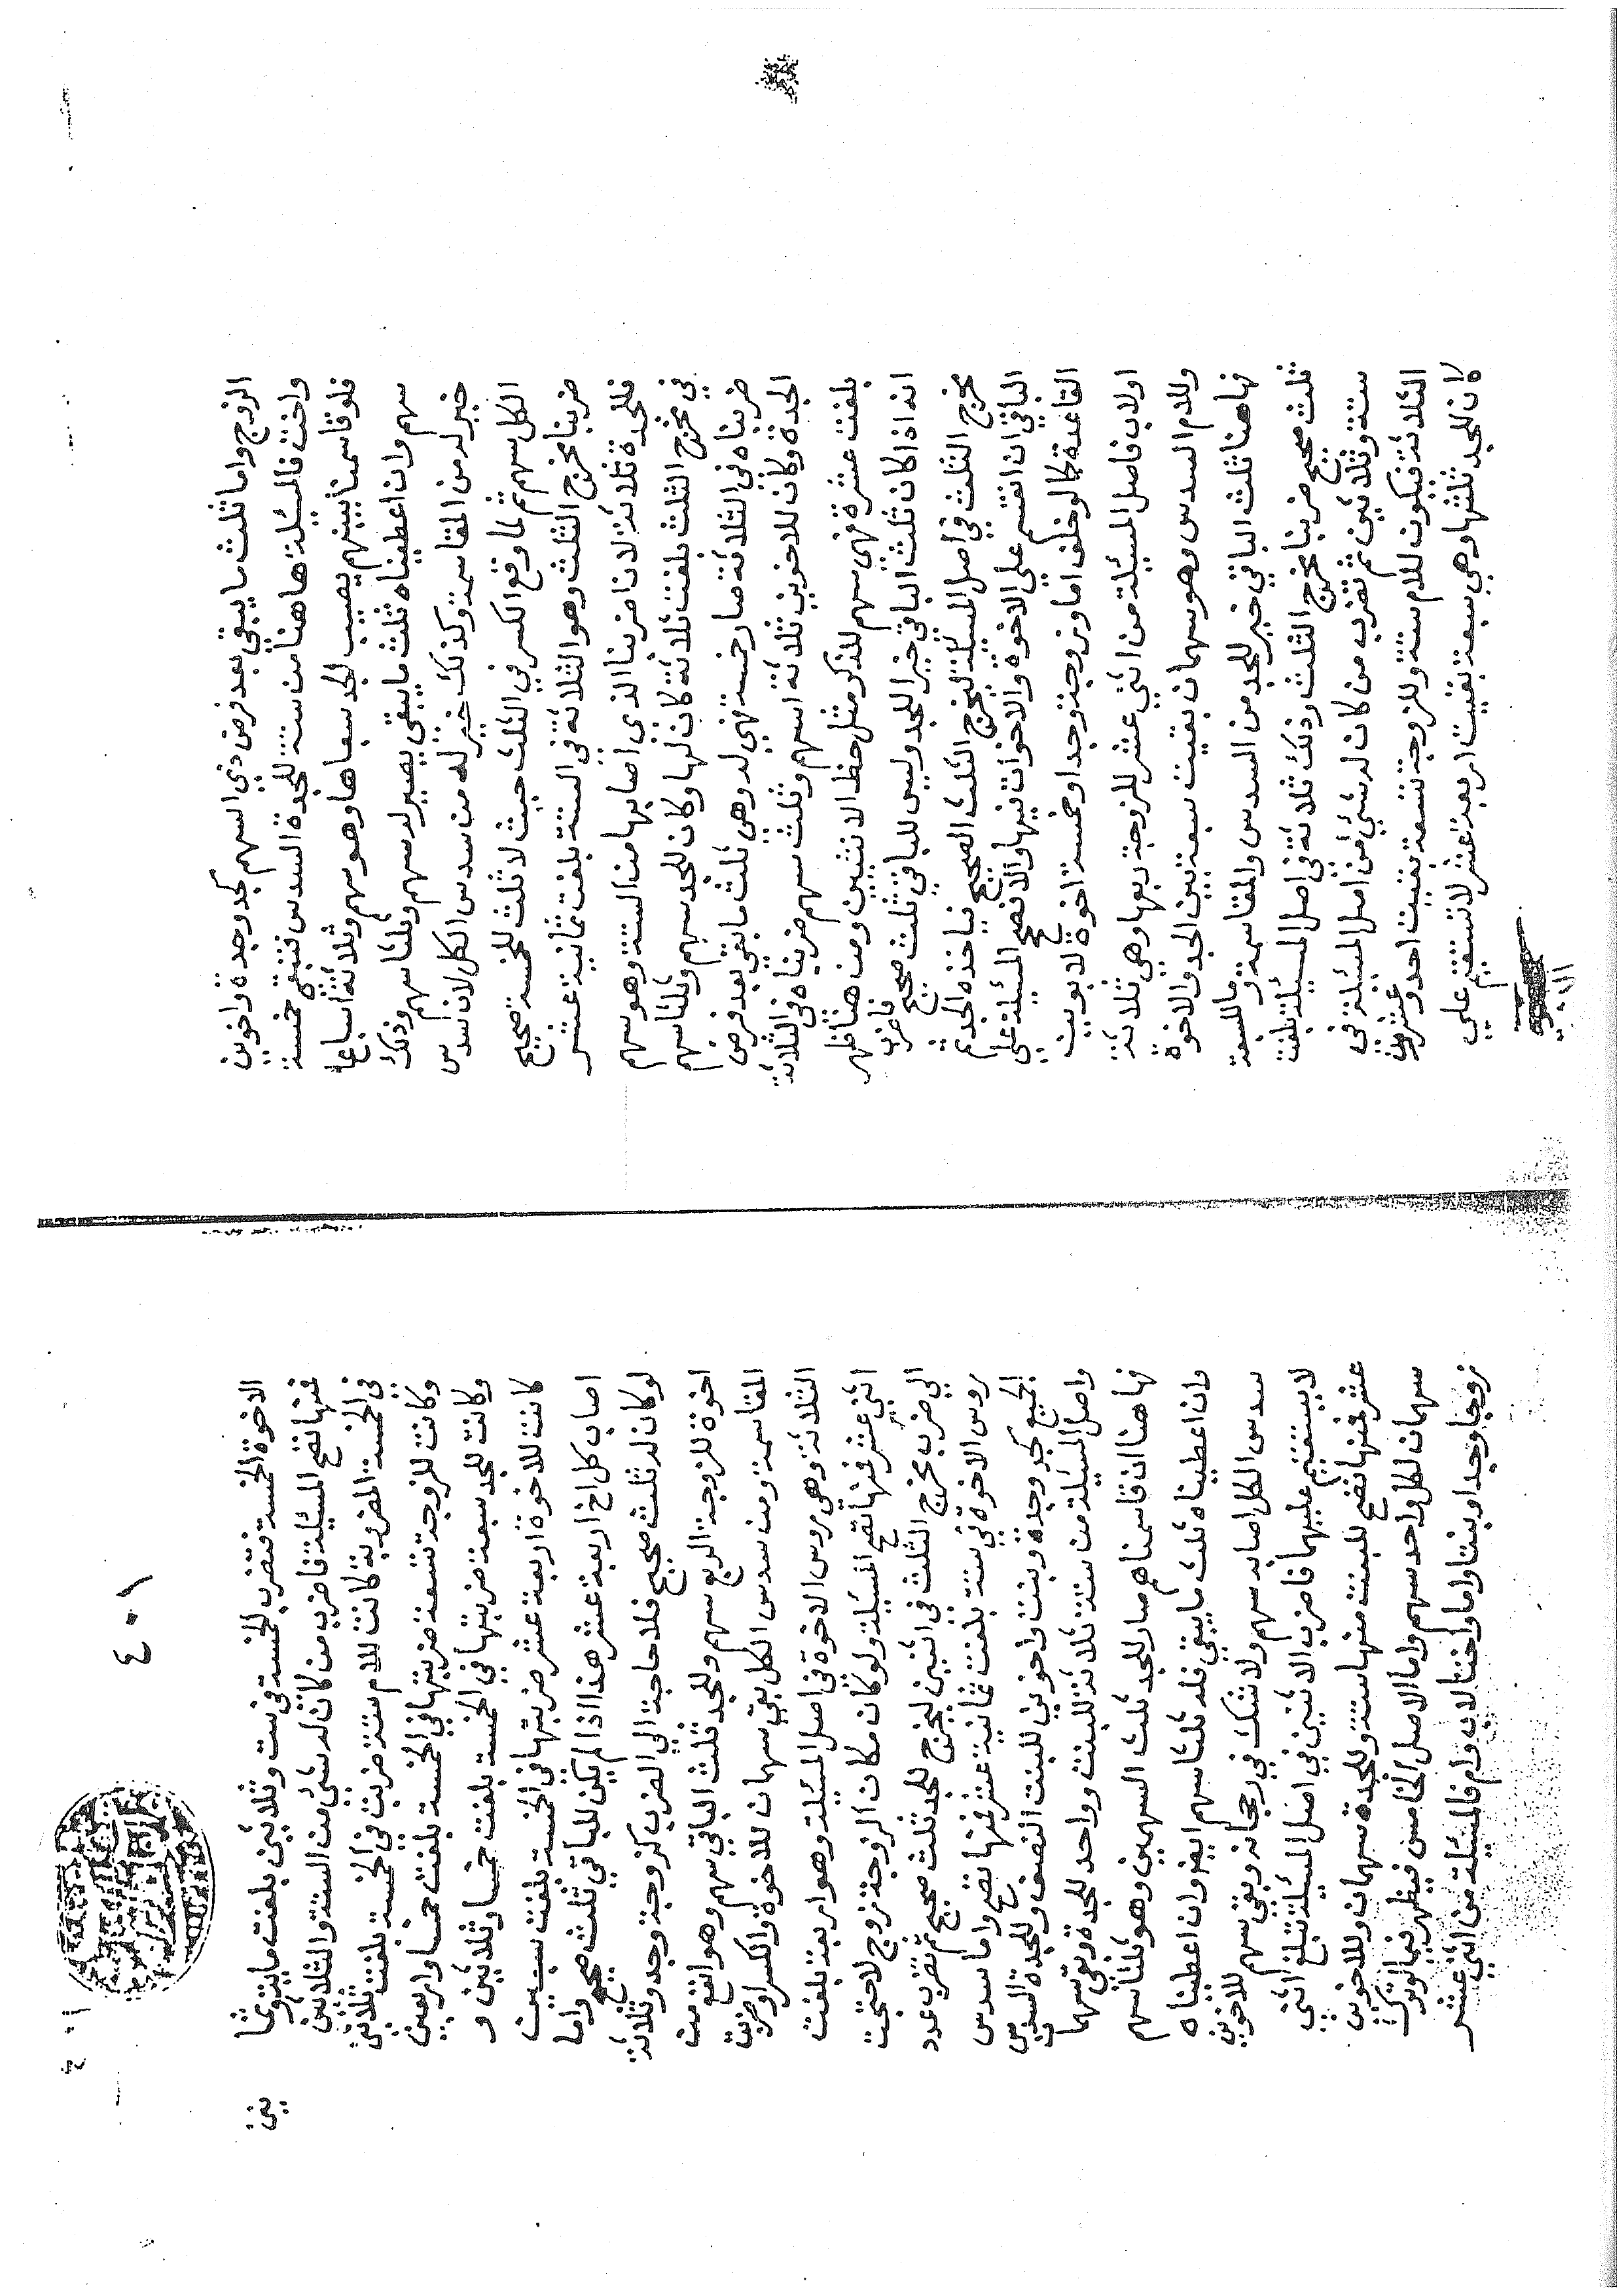 الزوج واما ثلث ما يبقي بعد فرض ذي السهم كجد وجدة واخوين
واخت فالمسئلة هاهنا من ستة للجدة السدس فتبقي خمسة
فلو قاسمنا بينهم يصيب الجد سبعاها وهو سهم وثلاثة اسباع
سهم وان اعطيناه ثلث ما يبقي يصير له سهم وثلثا سهم وذلك
خير له من المقاسمة وكذلك خير له من سدس الكل لان سدس
الكل سهم ثم لما وقع الكسر في الثلث حيث لا ثلث للخمسة صحيح
ضربنا مخرج الثلث وهو الثلاثة في الستة بلغت ثمانية عشر
فللجدة ثلاثة لانا ضربنا الذي اصابها من الستة وهو سهم
في مخرج الثلث بلغت ثلاثة كان لها وكان للجد سهم وثلثا سهم
ضربناه في الثلاثة صار خمسة فهي له وهي ثلث ما بقي بعد فرض
الجدة وكان للاخوين ثلاثة اسهم وثلث سهم ضربناه في الثلاثة
بلغت عشرة فهي سهم للذكر مثل حظ الانثيين ومن هنا ظهر
انه اذا كان ثلث الباقي خيرا للجد وليس للباقي ثلث صحيح فاضرب
مخرج الثلث في اصل المسئلة ليخرج الثلث الصحيح فياخذه الجد ثم
الباقي ان انقسم علي الاخوة والاخوات فيها والا تصح المسئلة علي
القاعدة كما لو خلف اما وزوجة وجدا وخمسة اخوة لابوين
اولاب فاصل المسئلة من اثني عشر للزوجة ربعها وهي ثلاثة
وللام السدس وهو سهمان بقيت سبعة بين الجد والاخوة
فهاهنا ثلث الباقي خير للجد من السدس والمقاسمة وما للسبعة
ثلث صحيح ضربنا مخرج الثلث وذلك ثلاثة في اصل المسئلة بلغت
ستة وثلاثين ثم تضرب من كان له شئ من اصل المسئلة في
الثلاثة فيكون للام ستة وللزوجة تسعة بقيت احد وعشرون
كان للجد ثلثها وهي سبعة بقيت اربعة عشر لا تستقيم علي
٤٠١
الاخوة الخمسة فتضرب الخمسة في ست وثلاثين بلغت ماية وثما
نين
فمنها تصح المسئلة فاضرب من كان له شئ من الستة والثلاثين
في الخمسة المضروبة كانت للام ستة ضربت في الخمسة بلغت ثلاثين
وكانت للزوجة تسعة ضربتها في الخمسة بلغت خمسا واربعين
وكانت للجد سبعة ضربتها في الخمسة بلغت خمسا وثلاثين و
كانت للاخوة اربعة عشر ضربتها في الخمسة بلغت سبعين
اصاب كل اخ اربعة عشر هذا اذا لم يكن للباقي ثلث صحيح واما
لو كان له ثلث صحيح فلا حاجة الي الضرب كزوجة وجد وثلاثة
اخوة للزوجة الربع سهم وللجد ثلث الباقي سهم وهو انفع من
المقاسمة ومن سدس الكل بقي سهمان للاخوة وانكسرا وضربت
الثلاثة وهي روس الاخوة في اصل المسئلة وهو اربعة بلغت
اثني عشر فمنها تصح المسئلة ولو كان مكان الزوجة زوج لاحتجت
الي ضرب مخرج الثلث في اثنين ليخرج للجد ثلث صحيح ثم تضرب عدد
روس الاخوة في ستة بلغت ثمانية عشر فمنها تصح واما سدس
الجميع كجد وجدة وبنت واخوين للبنت النصف وللجدة السدس
واصل المسئلة من ستة ثلاثة للبنت وواحد للجدة وبقي سهما
ن
فهاهنا ان قاسمناهم صار للجد ثلث السهمين وهو ثلثا سهم
وان اعطيناه ثلث ما يبقي فله ثلثا سهم ايضا وان اعطيناه
سدس الكل اصابه سهم ولا شك في رجحانه وبقي سهم للاخوين
لا يستقيم عليهما فاضرب الاثنين في اصل المسئلة تبلغ اثني
عشر فمنها تصح للبنت منها ستة وللجدة سهمان وللاخوين
سهمان لكل واحد سهم واما الاصل الخامس فيظهر فيما لو ترك
زوجا وجدا وبنتا واما واختا لاب وام فالمسئلة من اثني عشر